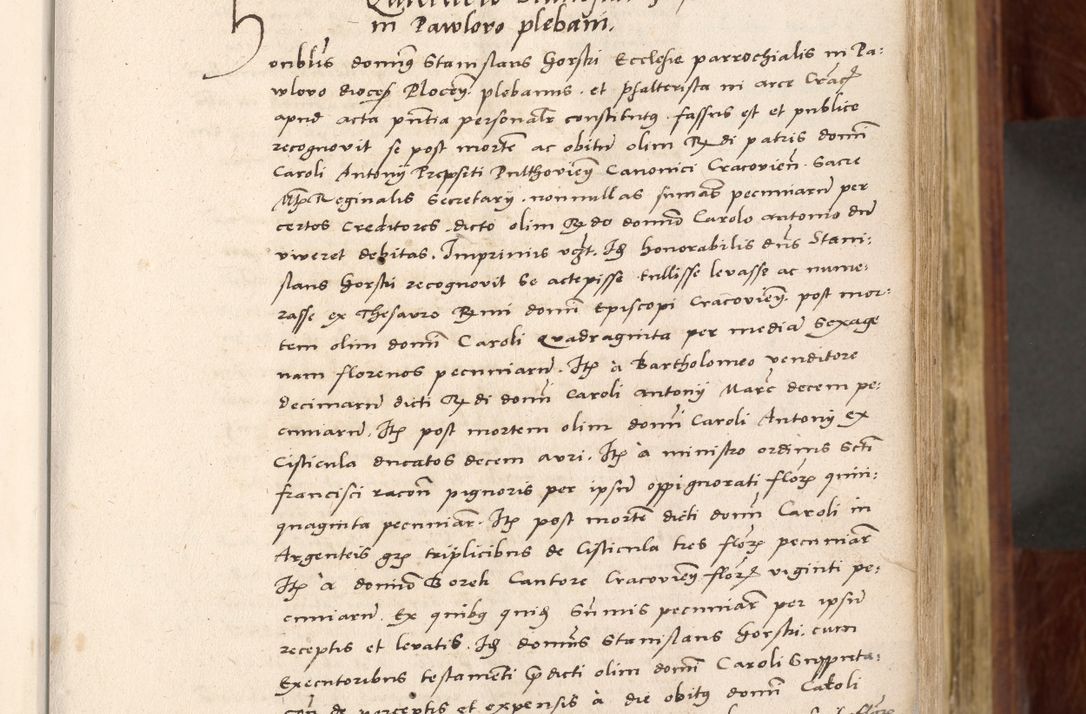 in Pawlowo plebani.
onblis domins Stanislaus Horski Ecclesie parrochialis in Pa-
wlowo dioces Plocen plebanus. et psalterista in arce Crac
apud acta pntia personalr constituts. fassus est et publice
recognovit se post morte ac obitu olim Rndi patris domi
Caroli Antonij Prepsiti Pulthovien Canonici Cracovien. Sacre
Mtis Reginalis Secretarij. nonnullas sumas pecuniaru per
certos Creditores dicto olim Rndo domino Carolo antonio du
viveret debitas. Imprimis vz. Ids honorabilis dns Stani-
slaus Horski recognovit se accepisse tullisse levasse ac nume-
rasse ex Thesauro Rmi domi Episcopi Cracovien. post mor-
tem olim domi Caroli Quadraginta per media Sexage
nam florenos pecuniaru. Ite à Bartholomeo venditore
decimaru dicti Rndi domi Caroli antonij Marc decem pe-
cuniaru. Ite post mortem olim domi Caroli Antonij ex
Cisticula ducatos decem auri. Ite à ministro ordinis Scti
francisci racon pignoris per ipsu oppignorati flor quin-
quaginta pecuniar. Ite post morte dicti domi Caroli in
Argenteis gr triplicibus de Cisticula tres flor pecuniar
Ite à domino Borek Cantore Cracovien flor viginti pe-
cuniaru. Ex quibs quids Sumis pecuniar per ipsu
receptis et levatis. Ids domins Stanislaus Horski. cum
Executoribus testamenti pdicti olim domi Caroli
de perceptis et expensis à die obits domi Caroli